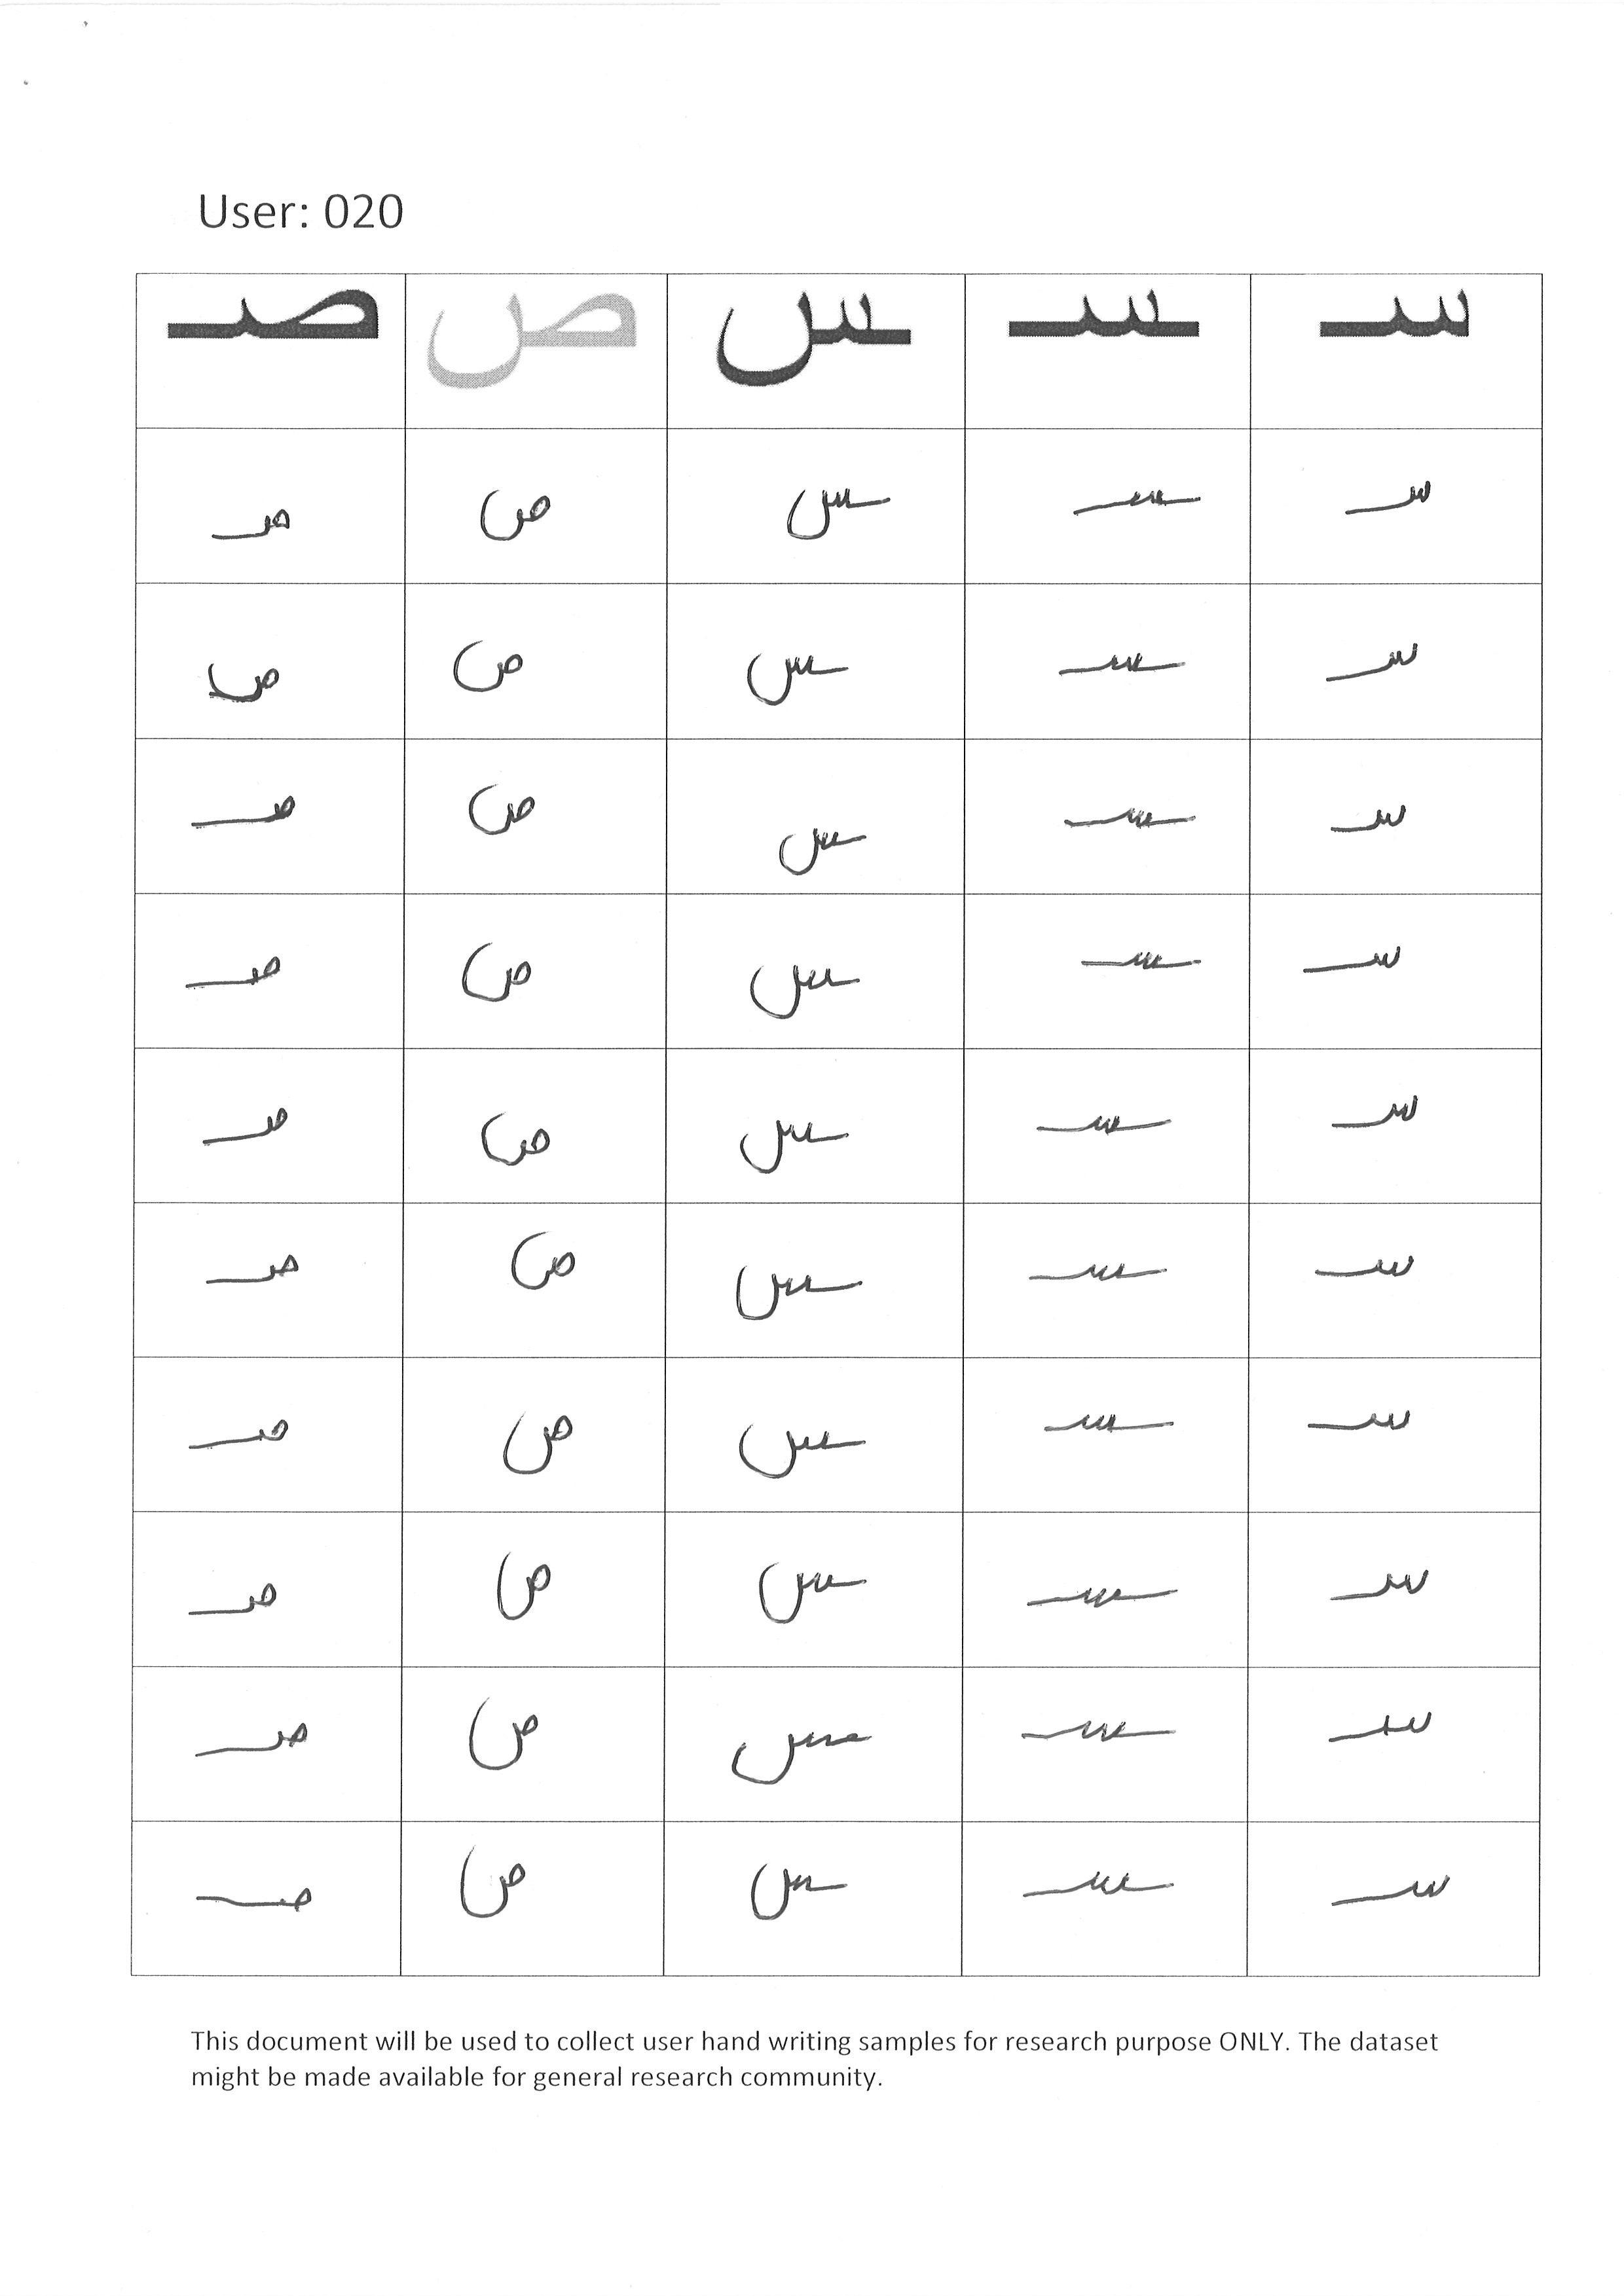 User: 020
سـ ـسـ ـس ص صـ
سـ ـسـ ـس ص صـ
سـ ـسـ ـس ص ص
سـ ـسـ ـس ص صـ
سـ ـسـ ـس ص صـ
سـ ـسـ ـس ص صـ
سـ ـسـ ـس ص صـ
سـ ـسـ ـس ص صـ
سـ ـسـ ـس ص صـ
سـ ـسـ ـس ص صـ
سـ ـسـ ـس ص صـ
This document will be used to collect user hand writing samples for research purpose ONLY. The dataset
might be made available for general research community.